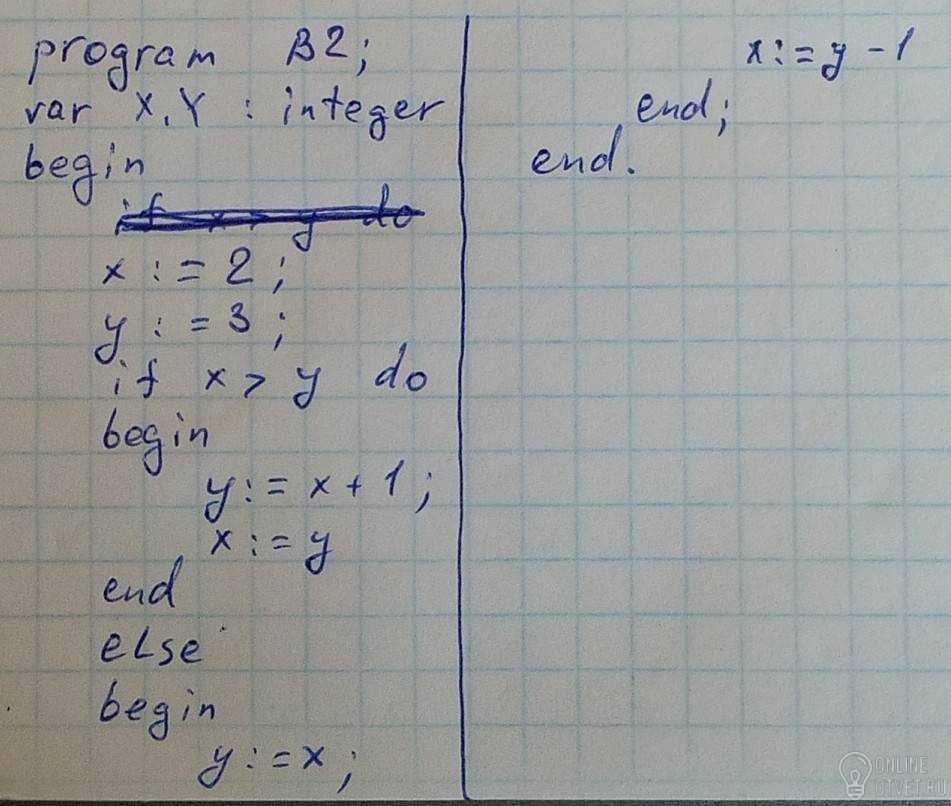 program B2;
var X, Y : integer
begin
if x > y do
x := 2;
y := 3;
if x > y do
begin
y := x + 1;
x := y
end
else
begin
y := x;
x := y - 1
end;
end.
ONLINE
OTVET.RU